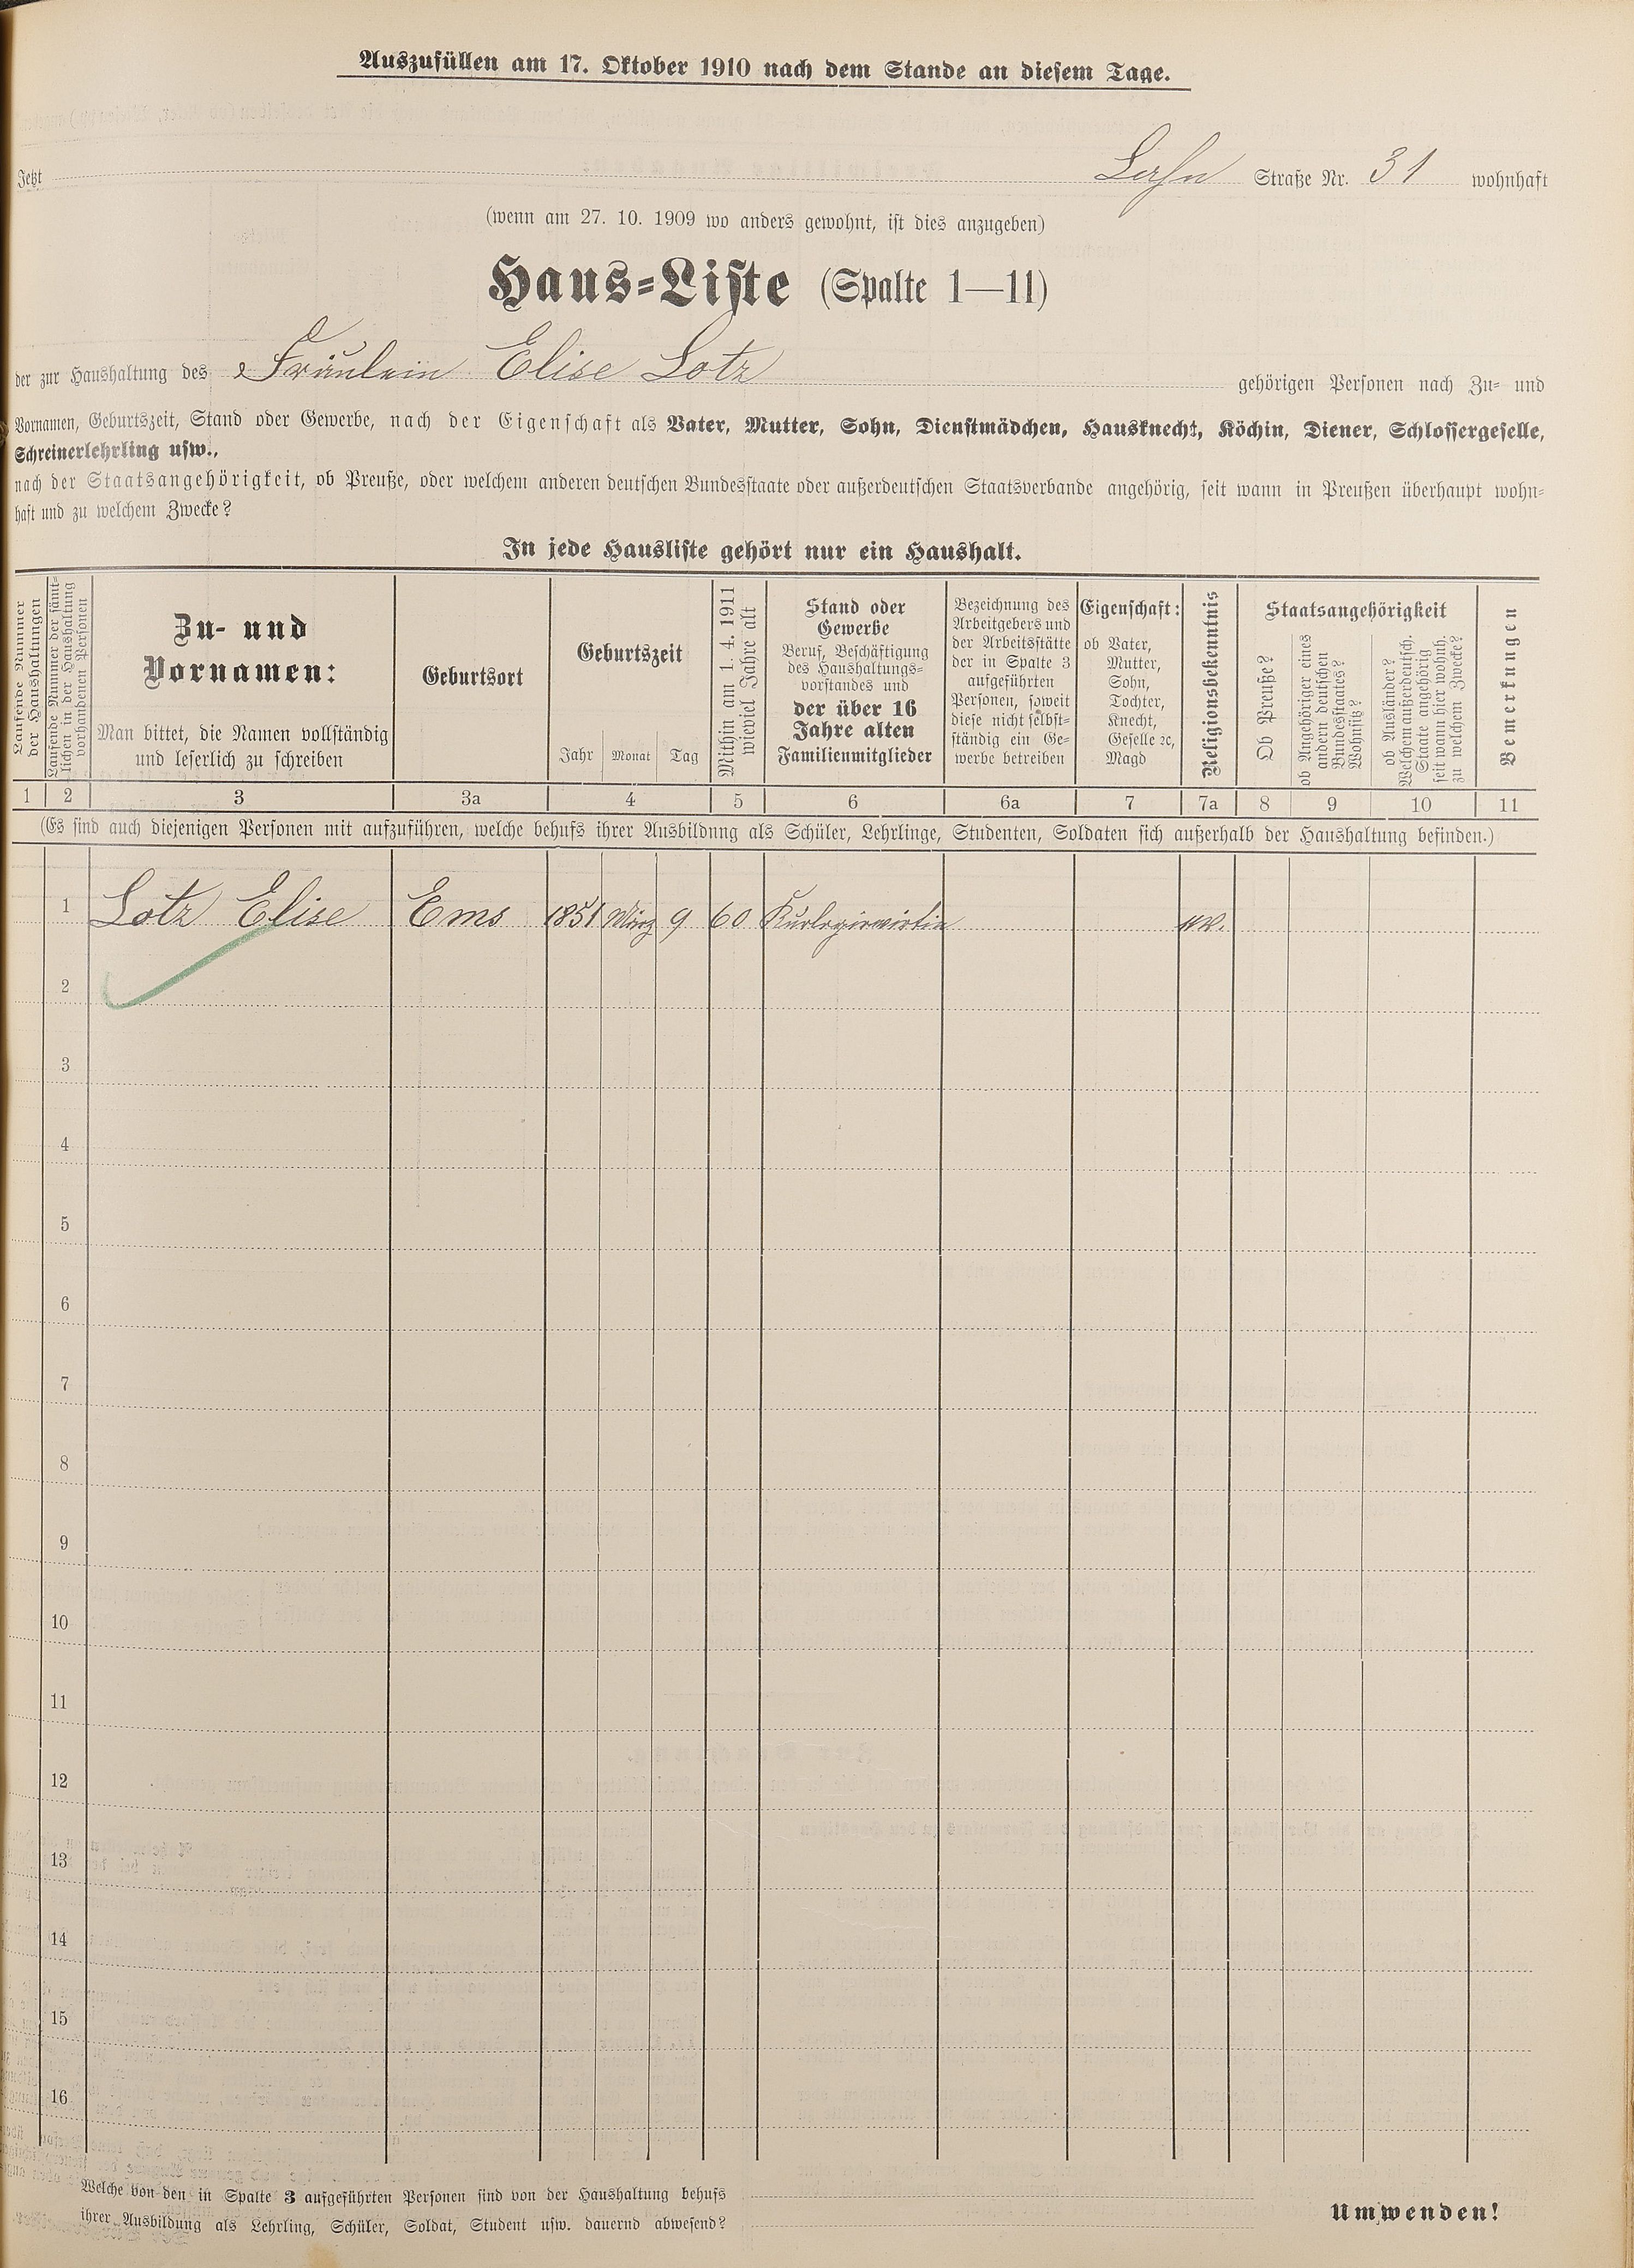 Auszufüllen am 17. Oktober 1910 nach dem Stande an diesem Tage.
Jetzt Lahn Straße Nr. 31 wohnhaft
(wenn am 27. 10. 1909 wo anders gewohnt, ist dies anzugeben)
Haus-Liste (Spalte 1—11)
der zur Haushaltung des Fräulein Elise Lotz gehörigen Personen nach Zu- und
Vornamen, Geburtszeit, Stand oder Gewerbe, nach der Eigenschaft als Vater, Mutter, Sohn, Dienstmädchen, Hausknecht, Köchin, Diener, Schlossergeselle,
Schreinerlehrling usw.,
nach der Staatsangehörigkeit, ob Preuße, oder welchem anderen deutschen Bundesstaate oder außerdeutschen Staatsverbande angehörig, seit wann in Preußen überhaupt wohn-
haft und zu welchem Zwecke?
In jede Hausliste gehört nur ein Haushalt.
Laufende Nummer
der Haushaltungen
Laufende Nummer der sämt-
lichen in der Haushaltung
vorhandenen Personen
Zu- und
Vornamen:
Man bittet, die Namen vollständig
und leserlich zu schreiben
Geburtsort
Geburtszeit
Jahr Monat Tag
Mithin am 1. 4. 1911
wieviel Jahre alt
Stand oder
Gewerbe
Beruf, Beschäftigung
des Haushaltungs-
vorstandes und
der über 16
Jahre alten
Familienmitglieder
Bezeichnung des
Arbeitgebers und
der Arbeitsstätte
der in Spalte 3
aufgeführten
Personen, soweit
diese nicht selbst-
ständig ein Ge-
werbe betreiben
Eigenschaft:
ob Vater,
Mutter,
Sohn,
Tochter,
Knecht,
Geselle ꝛc,
Magd
Religionsbekenntnis
Staatsangehörigkeit
Ob Preuße?
ob Angehöriger eines
andern deutschen
Bundesstaates?
Wohnsitz?
ob Ausländer?
Welchem außerdeutsch.
Staate angehörig
seit wann hier wohnh.
zu welchem Zwecke?
Bemerkungen
1 2 3 3a 4 5 6 6a 7 7a 8 9 10 11
(Es sind auch diejenigen Personen mit aufzuführen, welche behufs ihrer Ausbildung als Schüler, Lehrlinge, Studenten, Soldaten sich außerhalb der Haushaltung befinden.)
1 Lotz Elise Ems 1851 März 9 60 Kurlogirwirtin
2
3
4
5
6
7
8
9
10
11
12
13
14
15
16
Welche von den in Spalte 3 aufgeführten Personen sind von der Haushaltung behufs
ihrer Ausbildung als Lehrling, Schüler, Soldat, Student usw. dauernd abwesend?
Umwenden!